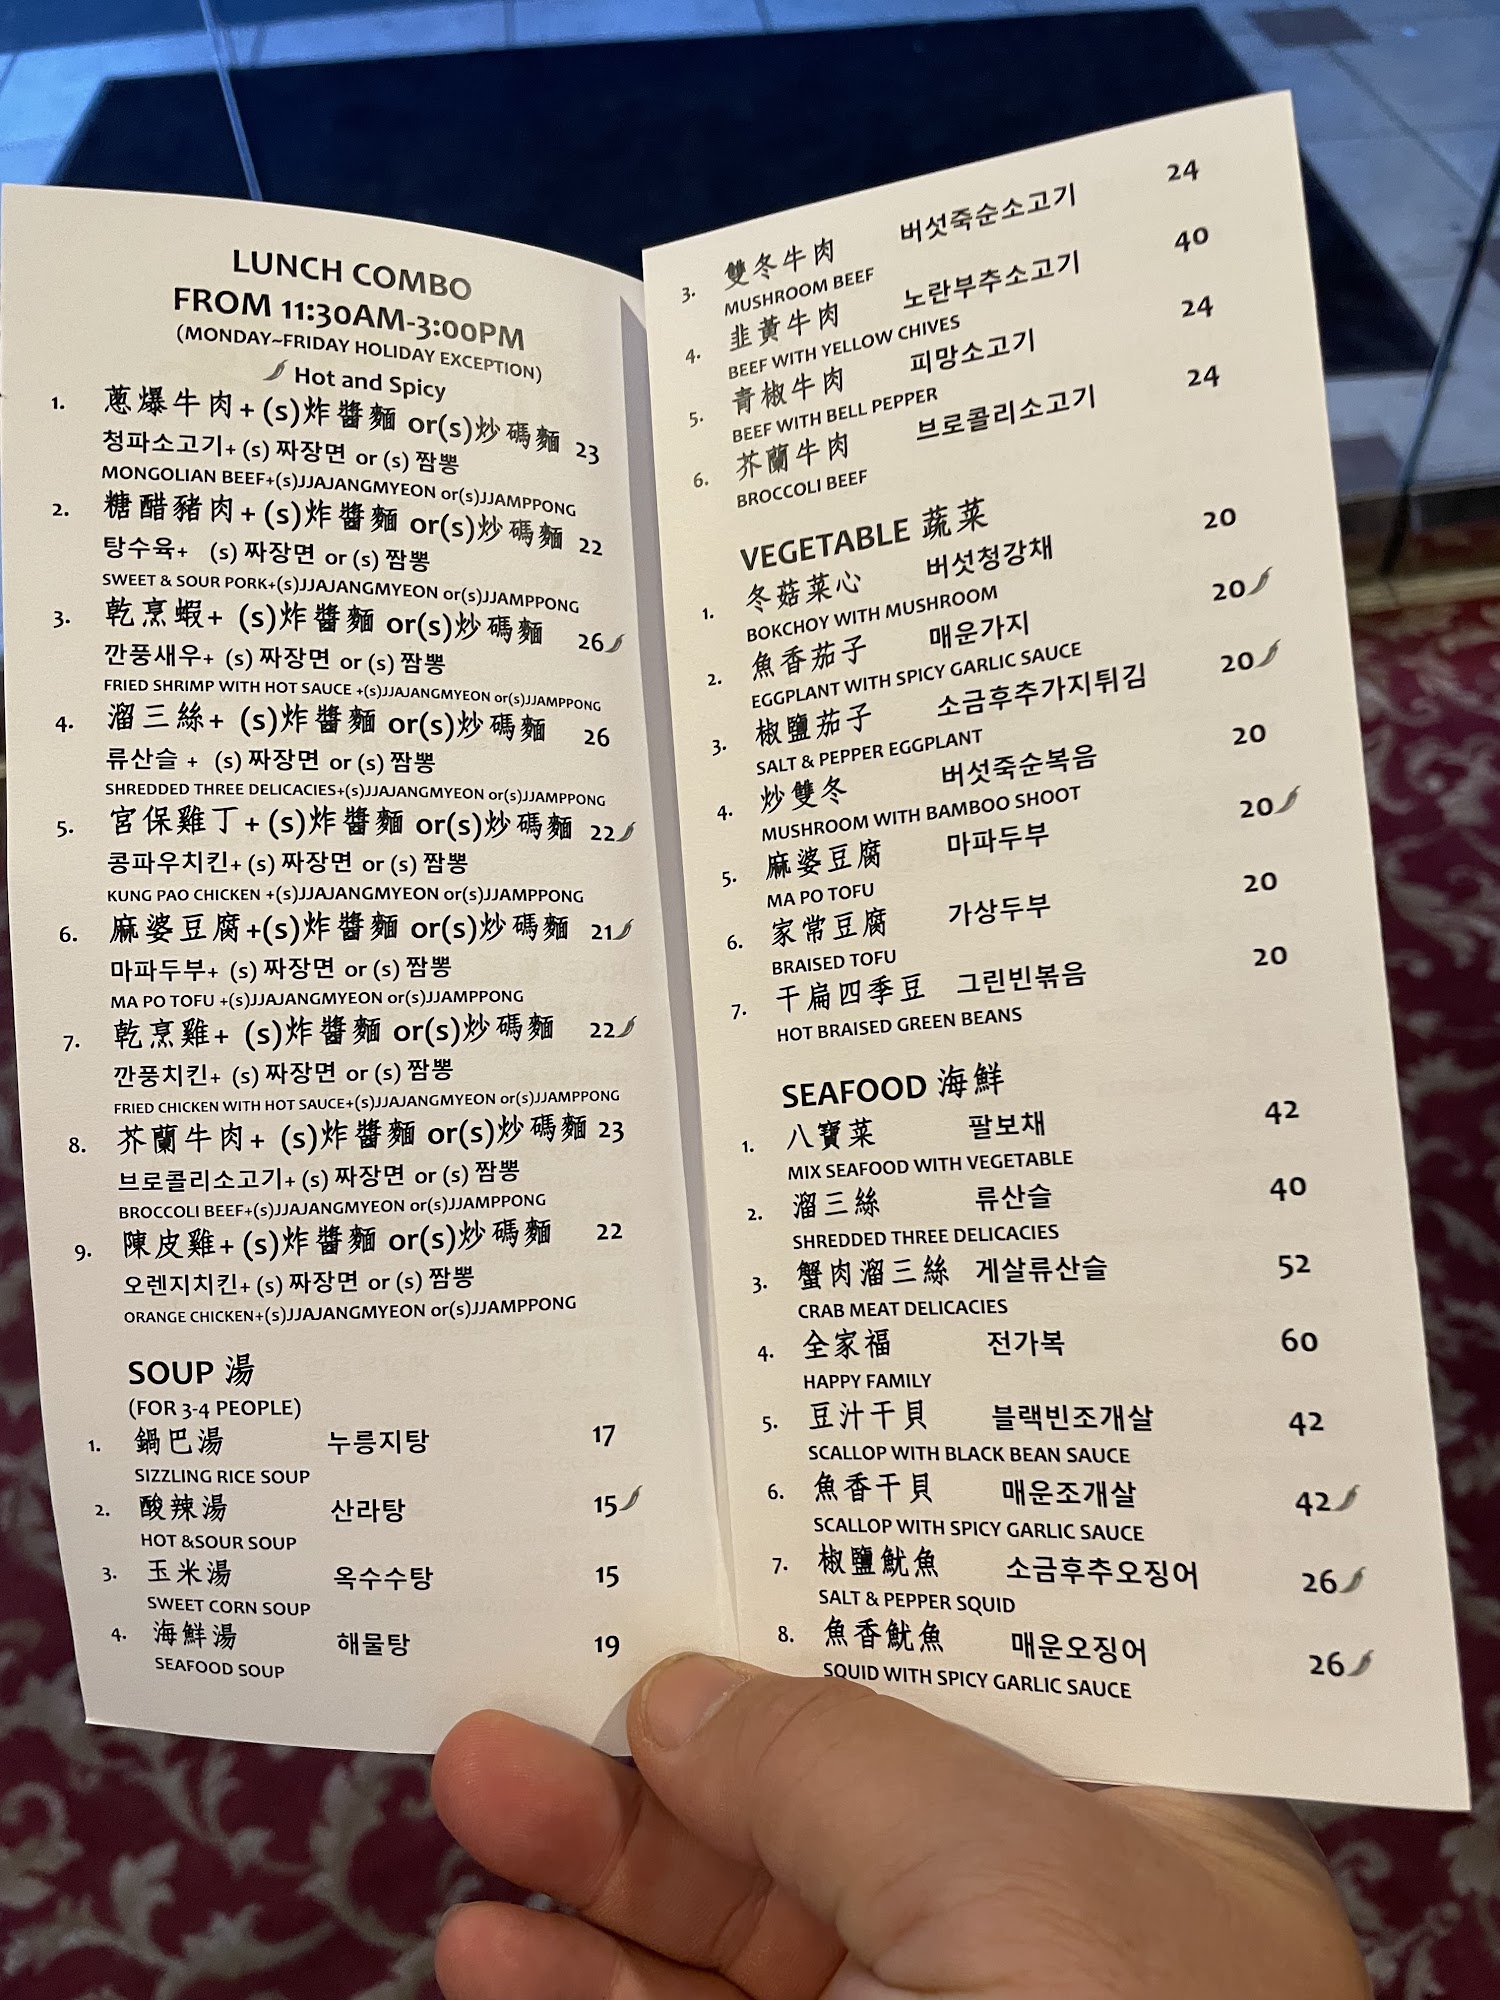 LUNCH COMBO
FROM 11:30AM-3:00PM
(MONDAY~FRIDAY HOLIDAY EXCEPTION)
Hot and Spicy
1. 蔥爆牛肉+(s)炸醬麵 or(s)炒碼麵 23
청파소고기+ (s) 짜장면 or (s) 짬뽕
MONGOLIAN BEEF+(s)JJAJANGMYEON or(s)JJAMPPONG
2. 糖醋豬肉+(s)炸醬麵 or(s)炒碼麵 22
탕수육+ (s) 짜장면 or (s) 짬뽕
SWEET & SOUR PORK+(s)JJAJANGMYEON or(s)JJAMPPONG
3. 乾烹蝦+ (s)炸醬麵 or(s)炒碼麵 26
깐풍새우+ (s) 짜장면 or (s) 짬뽕
FRIED SHRIMP WITH HOT SAUCE +(s)JJAJANGMYEON or(s)JJAMPPONG
4. 溜三絲+ (s)炸醬麵 or(s)炒碼麵 26
류산슬 + (s) 짜장면 or (s) 짬뽕
SHREDDED THREE DELICACIES+(s)JJAJANGMYEON or(s)JJAMPPONG
5. 宮保雞丁+(s)炸醬麵 or(s)炒碼麵 22
콩파우치킨+ (s) 짜장면 or (s) 짬뽕
KUNG PAO CHICKEN +(s)JJAJANGMYEON or(s)JJAMPPONG
6. 麻婆豆腐+(s)炸醬麵 or(s)炒碼麵 21
마파두부+ (s) 짜장면 or (s) 짬뽕
MA PO TOFU +(s)JJAJANGMYEON or(s)JJAMPPONG
7. 乾烹雞+ (s)炸醬麵 or(s)炒碼麵 22
깐풍치킨+ (s) 짜장면 or (s) 짬뽕
FRIED CHICKEN WITH HOT SAUCE+(s)JJAJANGMYEON or(s)JJAMPPONG
8. 芥蘭牛肉+ (s)炸醬麵 or(s)炒碼麵 23
브로콜리소고기+ (s) 짜장면 or (s) 짬뽕
BROCCOLI BEEF+(s)JJAJANGMYEON or(s)JJAMPPONG
9. 陳皮雞+ (s)炸醬麵 or(s)炒碼麵 22
오렌지치킨+ (s) 짜장면 or (s) 짬뽕
ORANGE CHICKEN+(s)JJAJANGMYEON or(s)JJAMPPONG
SOUP 湯
(FOR 3-4 PEOPLE)
1. 鍋巴湯 누릉지탕 17
SIZZLING RICE SOUP
2. 酸辣湯 산라탕 15
HOT &SOUR SOUP
3. 玉米湯 옥수수탕 15
SWEET CORN SOUP
4. 海鮮湯 해물탕 19
SEAFOOD SOUP
3. 雙冬牛肉 버섯죽순소고기 24
MUSHROOM BEEF
4. 韭黃牛肉 노란부추소고기 40
BEEF WITH YELLOW CHIVES
5. 青椒牛肉 피망소고기 24
BEEF WITH BELL PEPPER
6. 芥蘭牛肉 브로콜리소고기 24
BROCCOLI BEEF
VEGETABLE 蔬菜
1. 冬菇菜心 버섯청강채 20
BOKCHOY WITH MUSHROOM
2. 魚香茄子 매운가지 20
EGGPLANT WITH SPICY GARLIC SAUCE
3. 椒鹽茄子 소금후추가지튀김 20
SALT & PEPPER EGGPLANT
4. 炒雙冬 버섯죽순복음 20
MUSHROOM WITH BAMBOO SHOOT
5. 麻婆豆腐 마파두부 20
MA PO TOFU
6. 家常豆腐 가상두부 20
BRAISED TOFU
7. 干扁四季豆 그린빈볶음 20
HOT BRAISED GREEN BEANS
SEAFOOD 海鮮
1. 八寶菜 팔보채 42
MIX SEAFOOD WITH VEGETABLE
2. 溜三絲 류산슬 40
SHREDDED THREE DELICACIES
3. 蟹肉溜三絲 게살류산슬 52
CRAB MEAT DELICACIES
4. 全家福 전가복 60
HAPPY FAMILY
5. 豆汁干貝 블랙빈조개살 42
SCALLOP WITH BLACK BEAN SAUCE
6. 魚香干貝 매운조개살 42
SCALLOP WITH SPICY GARLIC SAUCE
7. 椒鹽魷魚 소금후추오징어 26
SALT & PEPPER SQUID
8. 魚香魷魚 매운오징어 26
SQUID WITH SPICY GARLIC SAUCE